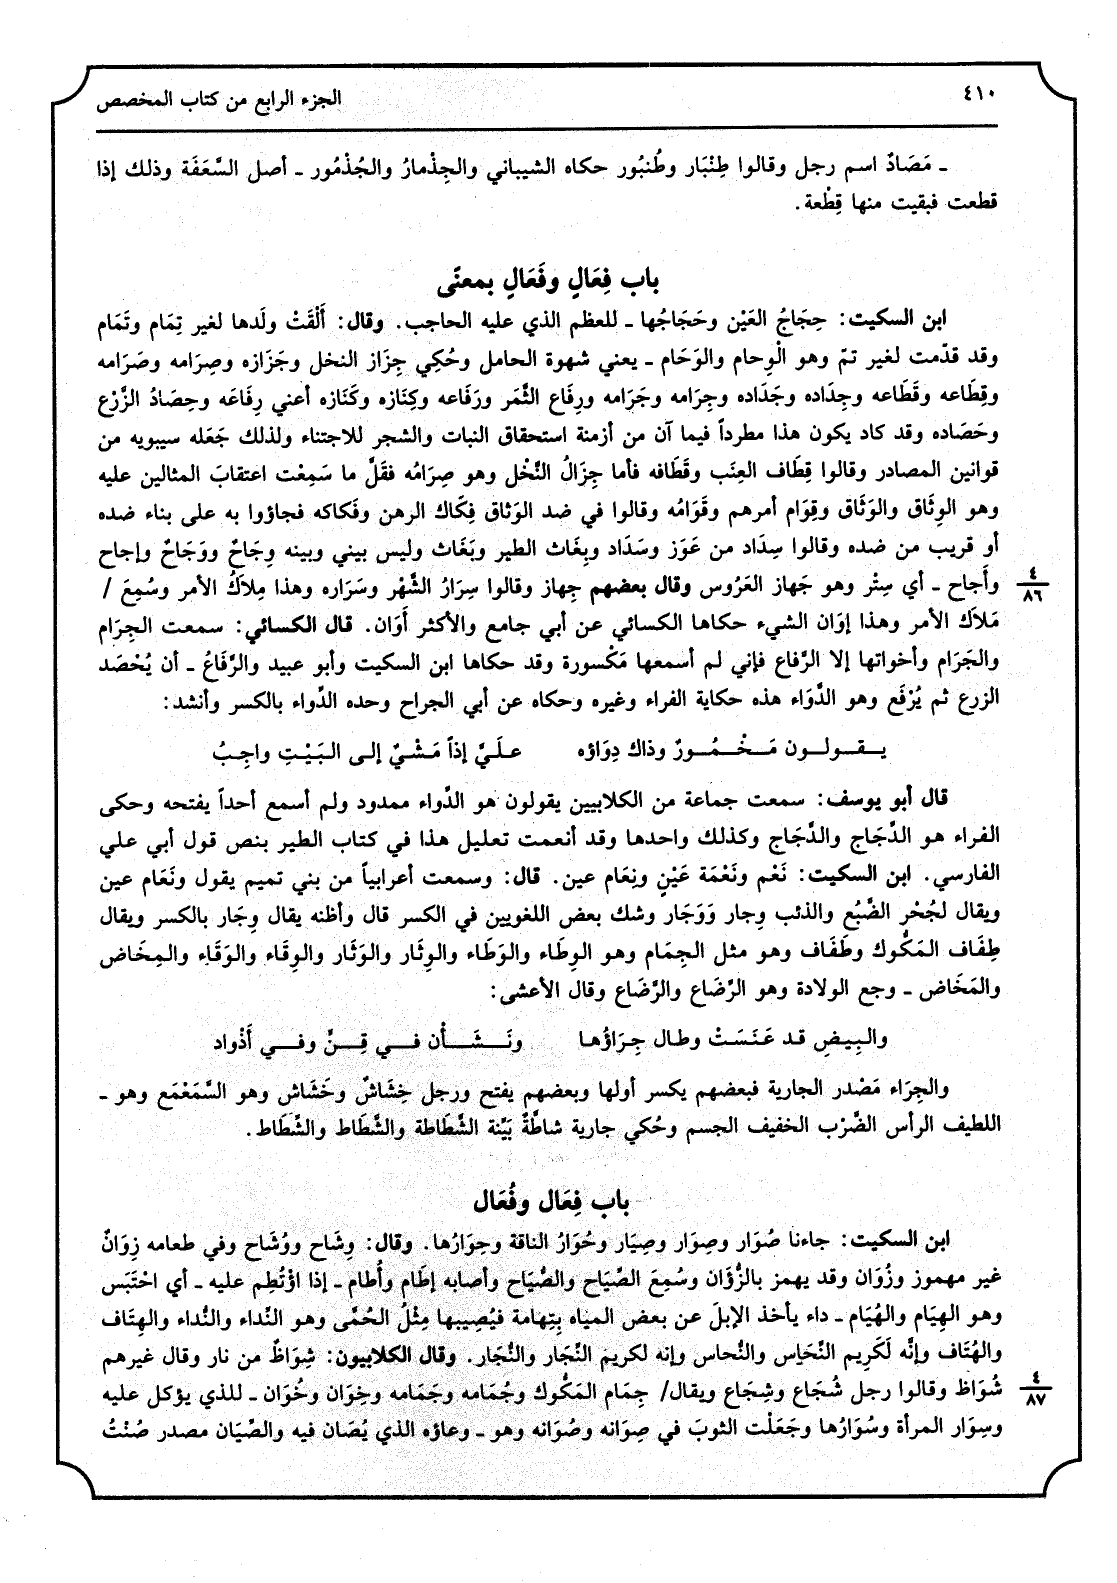 ٤١٠
الجزء الرابع من كتاب المخصص
ـ مَصَادٌ اسم رجل وقالوا طِنْبَار وطُنبُور حكاه الشيباني والجِذْمارُ والجُذْمُور ـ أصل السَّعَفَة وذلك إذا
قطعت فبقيت منها قِطْعة.
باب فِعَالٍ وفَعَالٍ بمعنًى
ابن السكيت: حِجَاجُ العَيْن وحَجَاجُها ـ للعظم الذي عليه الحاجب. وقال: أَلْقَتْ ولَدها لغير تِمَام وتَمَام
وقد قدّمت لغير تمّ وهو الْوِحام والوَحَام ـ يعني شهوة الحامل وحُكِي جِزَاز النخل وجَزَازه وصِرَامه وصَرَامه
وقِطَاعه وقَطَاعه وجِدَاده وجَدَاده وجِرَامه وجَرَامه ورِفَاع الثَّمَر ورَفَاعه وكِنَازه وكَنَازه أعني رِفَاعَه وحِصَادُ الزَّرْع
وحَصَاده وقد كاد يكون هذا مطرداً فيما آن من أزمنة استحقاق النبات والشجر للاجتناء ولذلك جَعَله سيبويه من
قوانين المصادر وقالوا قِطَاف العِنَب وقَطَافه فأما جِزَالُ النَّخْل وهو صِرَامُه فقَلَّ ما سَمِعْت اعتقابَ المثالين عليه
وهو الوِثَاق والوَثَاق وقِوَام أمرهم وقَوَامُه وقالوا في ضد الوَثَاق فِكَاك الرهن وفَكاكه فجاؤوا به على بناء ضده
أو قريب من ضده وقالوا سِدَاد من عَوَز وسَدَاد وبِغَاث الطير وبَغَاث وليس بيني وبينه وِجَاحٌ ووَجَاحٌ وإجاح
وأَجاح ـ أي سِتْر وهو جَهاز العَرُوس وقال بعضهم جِهاز وقالوا سِرَارُ الشَّهْر وسَرَاره وهذا مِلاكُ الأمر وسُمِعَ /
٤
٨٦
مَلاَك الأمر وهذا إوَان الشيء حكاها الكسائي عن أبي جامع والأكثر أَوَان. قال الكسائي: سمعت الجِرَام
والجَرَام وأخواتها إلا الرَّفاع فإني لم أسمعها مَكْسورة وقد حكاها ابن السكيت وأبو عبيد والرَّفَاعُ ـ أن يُحْصَد
الزرع ثم يُرْفَع وهو الدَّوَاء هذه حكاية الفراء وغيره وحكاه عن أبي الجراح وحده الدِّواء بالكسر وأنشد:
يـقـولـون مَـخْـمُـورٌ وذاك دِوَاؤه    عـلَـيَّ إذاً مَـشْـيٌ إلـى الـبَـيْـتِ واجِـبُ
قال أبو يوسف: سمعت جماعة من الكلابيين يقولون هو الدِّواء ممدود ولم أسمع أحداً يفتحه وحكى
الفراء هو الدِّجَاج والدَّجَاج وكذلك واحدها وقد أنعمت تعليل هذا في كتاب الطير بنص قول أبي علي
الفارسي. ابن السكيت: نَعْم ونَعْمَة عَيْنٍ ونِعَام عين. قال: وسمعت أعرابياً من بني تميم يقول ونَعَام عين
ويقال لجُحْر الضَّبُع والذئب وِجار ووَجَار وشك بعض اللغويين في الكسر قال وأظنه يقال وِجَار بالكسر ويقال
طِفَاف المَكُّوك وطَفَاف وهو مثل الجِمَام وهو الوِطَاء والوَطَاء والوِثَار والوَثَار والوِقَاء والوَقَاء والمِخَاض
والمَخَاض ـ وجع الولادة وهو الرِّضَاع والرَّضَاع وقال الأعشى:
والـبِـيـضِ قـد عَـنَـسَـتْ وطـال جِـرَاؤُهـا    ونَـشَـأْن فـي قِـنٍّ وفـي أَذْواد
والجِرَاء مَصْدر الجارية فبعضهم يكسر أولها وبعضهم يفتح ورجل خِشَاشٌ وخَشَاش وهو السَّمَعْمَع وهو ـ
اللطيف الرأس الضَّرْب الخفيف الجسم وحُكي جارية شاطَّةٌ بَيِّنة الشَّطَاطة والشَّطَاط والشِّطَاط.
باب فِعَال وفُعَال
ابن السكيت: جاءنا صُوَار وصِوَار وصِيَار وحُوَارُ الناقة وحِوَارُها. وقال: وِشَاح ووُشَاح وفي طعامه زِوَانٌ
غير مهموز وزُوَان وقد يهمز بالزُّؤَان وسُمِعَ الصِّيَاح والصُّيَاح وأصابه إطَام وأُطام ـ إذا اؤْتُطِم عليه ـ أي احْتَبَس
وهو الهِيَام والهُيَام ـ داء يأخذ الإبلَ عن بعض المياه بِتِهامة فيُصِيبها مِثْلُ الحُمَّى وهو النِّداء والنُّداء والهِتَاف
والهُتَاف وإنَّه لَكَرِيم النِّحَاس والنُّحاس وإنه لكريم النِّجَار والنُّجَار. وقال الكلابيون: شِوَاظٌ من نار وقال غيرهم
شُوَاظ وقالوا رجل شُجَاع وشِجَاع ويقال/ جِمَام المَكُّوك وجُمَامه وجَمَامه وخِوَان وخُوَان ـ للذي يؤكل عليه
٤
٨٧
وسِوَار المرأة وسُوَارُها وجَعَلْت الثوبَ في صِوَانه وصُوَانه وهو ـ وعاؤه الذي يُصَان فيه والصِّيَان مصدر صُنْتُ